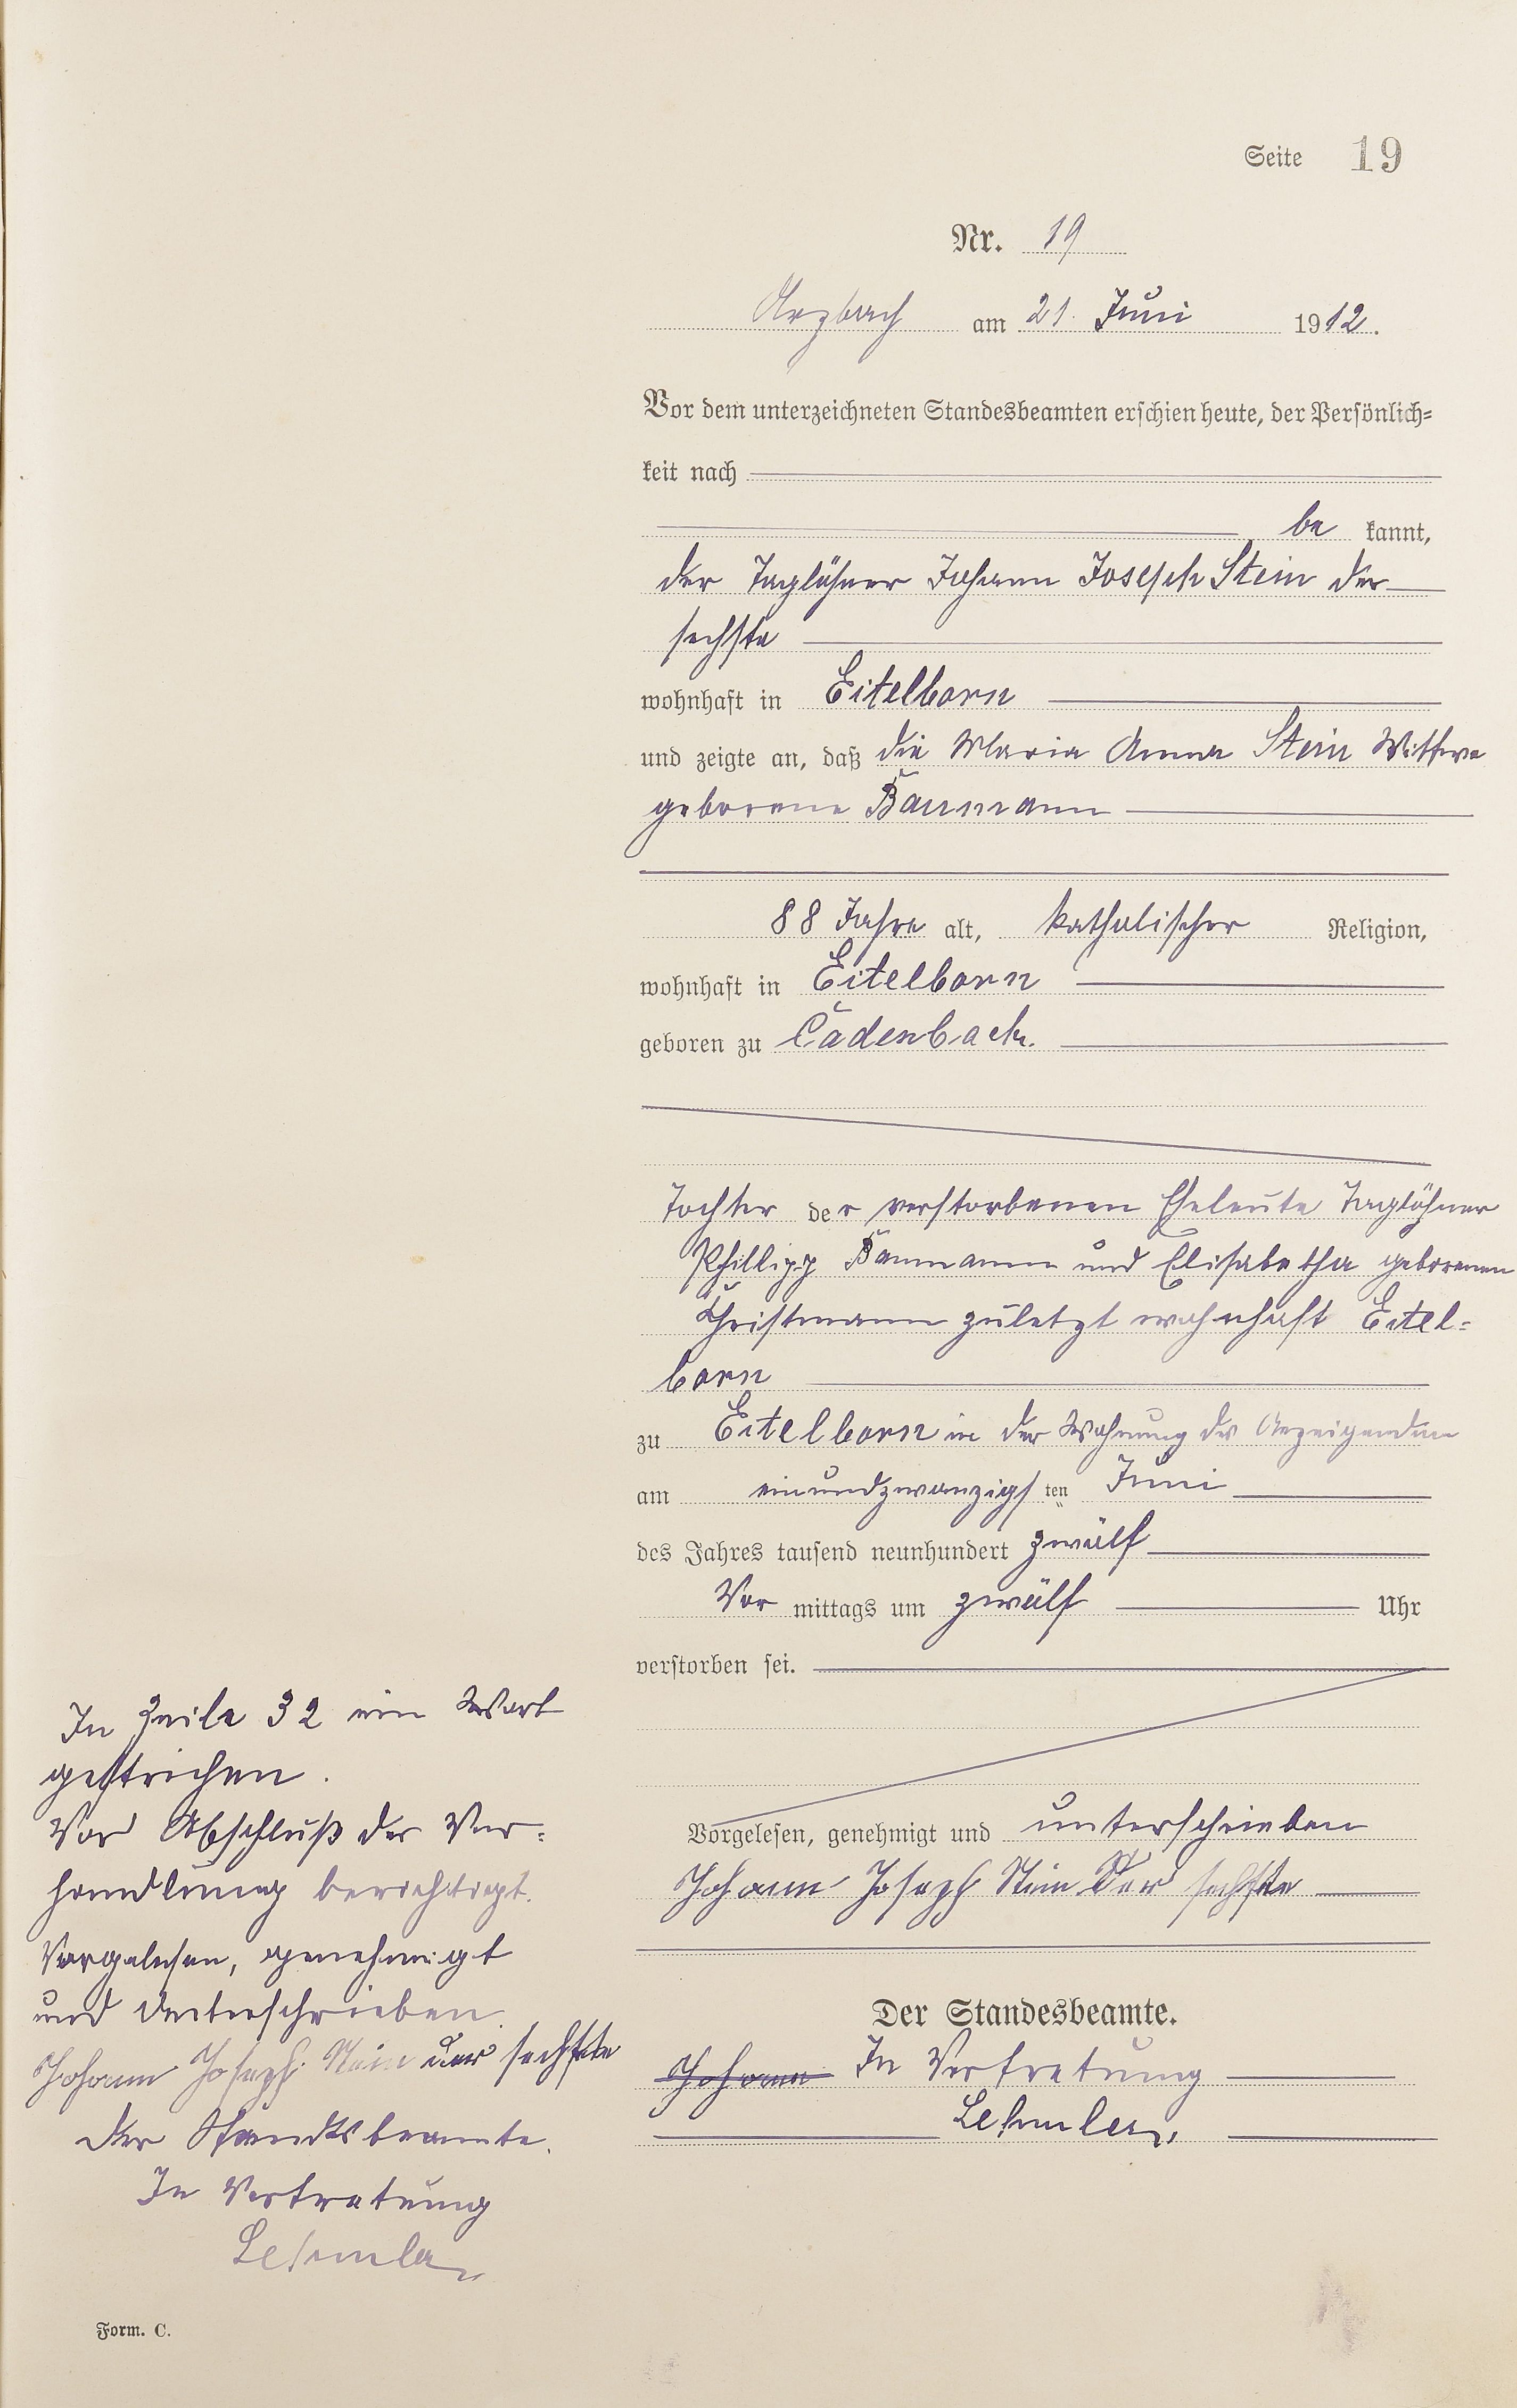 Seite 19
Nr. 19
Arzbach am 21. Juni 1912.
Vor dem unterzeichneten Standesbeamten erschien heute, der Persönlich-
keit nach
be kannt,
der Taglöhner Johann Joseph Stein der
sechste
wohnhaft in Eitelborn
und zeigte an, daß die Maria Anna Stein Wittwe
geborene Baumann
88 Jahre alt, katholischer Religion,
wohnhaft in Eitelborn
geboren zu Cadenbach.
Tochter der verstorbenen Eheleute Taglöhner
Phillipp Baumann und Elisabetha geborenen
Christmann zuletzt wohnhaft Eitel-
born
zu Eitelborn in der Wohnung des Anzeigenden
am einundzwanzigsten Juni
des Jahres tausend neunhundert zwölf
Vor mittags um zwölf Uhr
verstorben sei.
Vorgelesen, genehmigt und unterschrieben
Johann Joseph Stein Der sechste
Der Standesbeamte.
Johann In Vertretung
In Zeile 32 ein Wort
gestrichen.
Vor Abschluß der Ver-
handlung berichtigt.
Vorgelesen, genehmigt
und unterschrieben.
Johann Joseph Stein der sechste
Der Standesbeamte.
In Vertretung
Form. C.